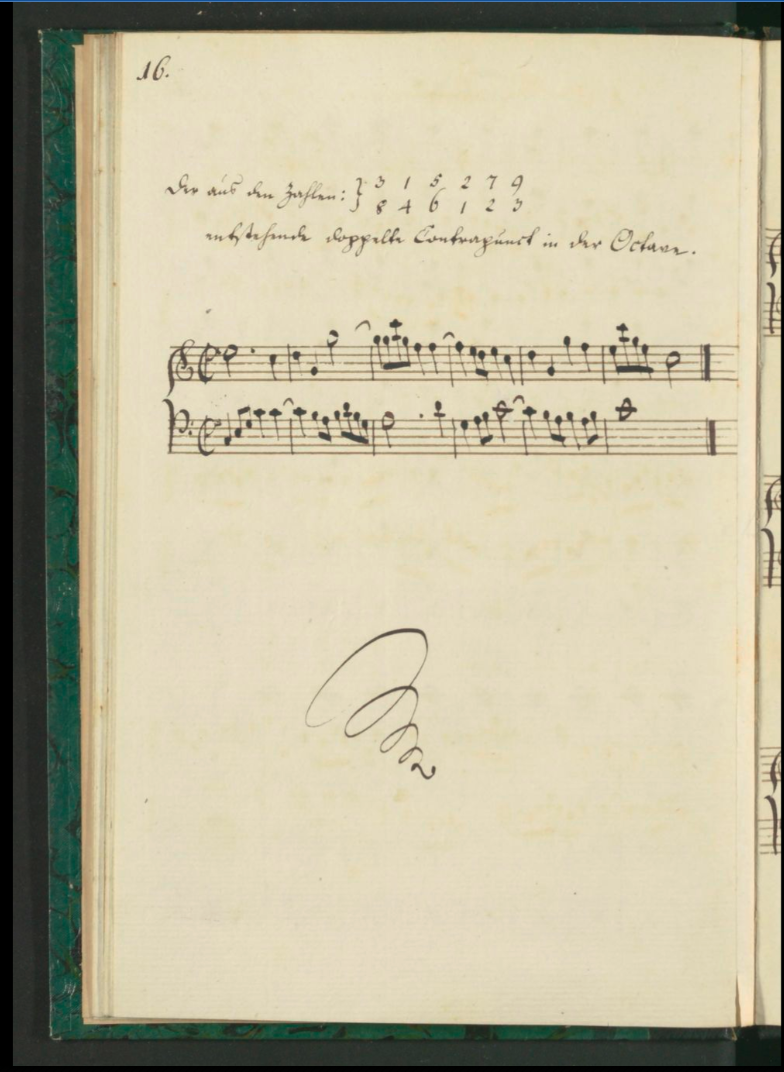 16.
Der aus den Zahlen: } 3 1 5 2 7 9
} 8 4 6 1 2 3
entstehende doppelte Contrapunct in der Octave.